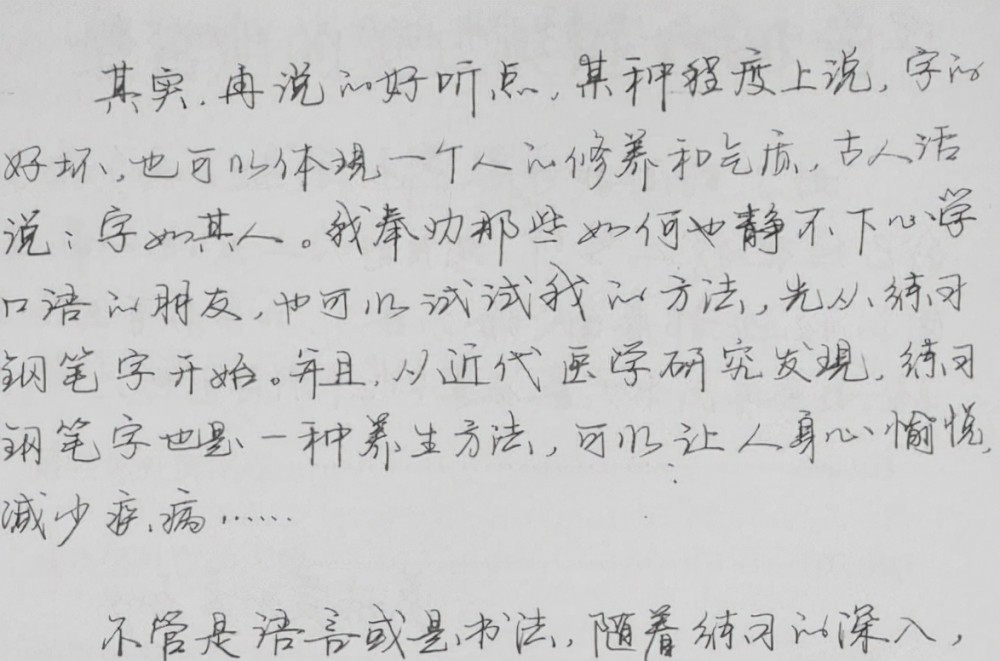 其实,再说的好听点,某种程度上说,字的
好坏,也可以体现一个人的修养和气质,古人活
说:字如其人。我奉劝那些如何也静不下心学
口语的朋友,也可以试试我的方法,先从练习
钢笔字开始。并且,从近代医学研究发现,练习
钢笔字也是一种养生方法,可以让人身心愉悦,
减少疾病……
不管是语言或是书法,随着练习的深入,